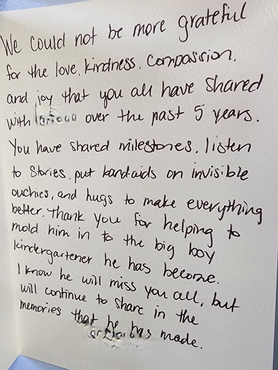 We could not be more grateful
for the love, kindness, compassion,
and joy that you all have shared
with over the past 5 years.
You have shared milestones, listen
to stories, put bandaids on invisible
ouchies, and hugs to make everything
better. Thank you for helping to
mold him in to the big boy
kindergartener he has become.
I know he will miss you all, but
will continue to share in the
memories that he has made.